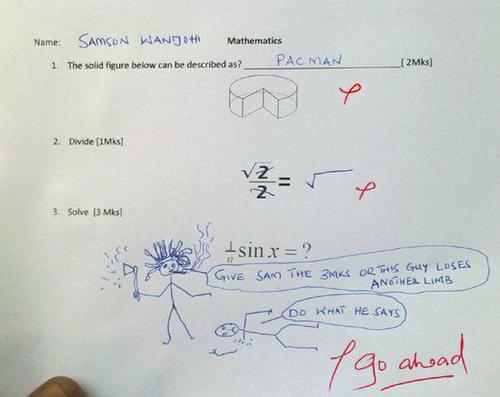 Name: SAMSON WANJOHI Mathematics
1. The solid figure below can be described as? PACMAN [2Mks]
2. Divide [1Mks]
√2
2 = √
3. Solve [3 Mks]
1
n sin x = ?
GIVE SAM THE 3MKS OR THIS GUY LOSES
ANOTHER LIMB
DO WHAT HE SAYS
go ahead